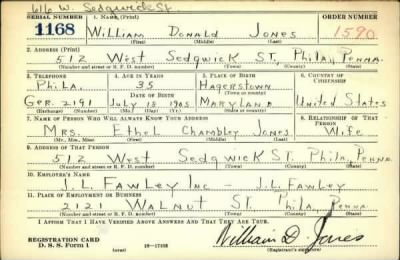 616 W. Sedgwick St.
SERIAL NUMBER 1. NAME (Print) ORDER NUMBER
1168 William Donald Jones 1590
(First) (Middle) (Last)
2. ADDRESS (Print)
512 West Sedgwick St., Phila., Penna.
(Number and street or R. F. D. number) (Town) (County) (State)
3. TELEPHONE 4. AGE IN YEARS 5. PLACE OF BIRTH 6. COUNTRY OF CITIZENSHIP
Phila. 35 Hagerstown
DATE OF BIRTH (Town or county)
Ger. 2191 July 18 1905 Maryland United States
(Exchange) (Number) (Mo.) (Day) (Yr.) (State or country)
7. NAME OF PERSON WHO WILL ALWAYS KNOW YOUR ADDRESS 8. RELATIONSHIP OF THAT PERSON
Mrs. Ethel Chambley Jones Wife
(Mr., Mrs., Miss) (First) (Middle) (Last)
9. ADDRESS OF THAT PERSON
512 West Sedgwick St. Phila., Penna.
(Number and street or R. F. D. number) (Town) (County) (State)
10. EMPLOYER'S NAME
J. L. Fawley Inc — J. L. Fawley
11. PLACE OF EMPLOYMENT OR BUSINESS
2121 Walnut St. Phila., Penna.
(Number and street or R. F. D. number) (Town) (County) (State)
I AFFIRM THAT I HAVE VERIFIED ABOVE ANSWERS AND THAT THEY ARE TRUE.
REGISTRATION CARD
D. S. S. Form 1 (over) 16—17105 William D. Jones
(Registrant's signature)